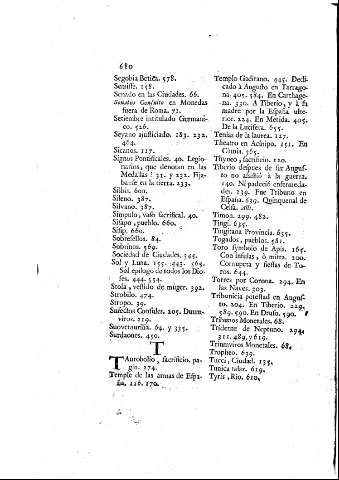 680
Segobia Betica. 578.
Semisse. 158.
Senado en las Ciudades. 66.
Senatus Consulto en Monedas
fuera de Roma. 71.
Setiembre intitulado Germani-
co. 526.
Seyano ajusticiado. 183. 232.
464.
Sicanos. 117.
Signos Pontificales. 40. Legio-
narios, que denotan en las
Medallas? 31. y 232. Fija-
banse en la tierra. 233.
Silbis. 600.
Sileno. 387.
Silvano. 387.
Simpulo, vaso sacrifical. 40.
Sisapo, pueblo. 660.
Sisip. 660.
Sobresellos. 84.
Sobrinos. 569.
Sociedad de Ciudades. 345.
Sol y Luna. 155. 443. 565.
Sol epilogo de todos los Dio-
ses. 444. 554.
Stola, vestido de muger. 392.
Strobilo. 474.
Stropo. 39.
Sufectos Consules. 205. Dumm-
viros. 219.
Suovetaurilia. 64. y 335.
Surdaones. 450.
T
Taurobolio, sacrificio, pa-
gin. 274.
Temple de las armas de Espa-
ña. 126. 170.
Templo Gaditano. 445. Dedi-
cado à Augusto en Tarrago-
na. 405. 584. En Carthage-
na. 330. A Tiberio, y à sa
madre por la España ulte-
rior. 224. En Merida. 405.
De la Lucifera. 655.
Tenias de la laurea. 127.
Theatro en Acinipo. 151. En
Clunia. 365.
Thyneo, sacrificio. 120.
Tiberio despues de ser Augus-
to no assistió à la guerra.
140. Ni padeció enfermeda-
des. 239. Fue Tribuno en
España. 639. Quinquenal de
Cesa. Alli.
Timon. 299. 482.
Tingi. 635.
Tingitana Provincia. 635.
Togados, pueblos. 581.
Toro symbolo de Apis. 165.
Con insulas, ò mitra. 200.
Corrupeta y fiestas de To-
ros. 644.
Torres por Corona. 294. En
las Naves. 303.
Tribunicia potestad en Augus-
to. 204. En Tiberio. 229.
589. 590. En Druso. 590.
Tribunos Monetales. 68.
Tridente de Neptuno. 294.
311. 489. y 619.
Triumviros Monetales. 68.
Tropheo. 639.
Tucci, Ciudad. 135.
Tunica talar. 619.
Tyris, Rio. 610.